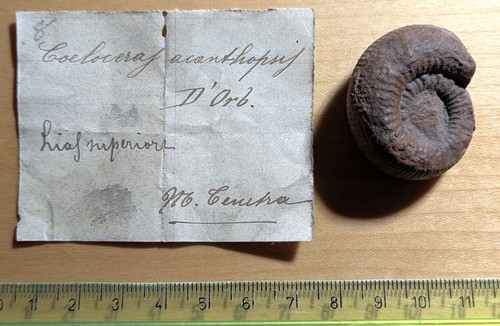 8
Coeloceras acanthopsis
D'Orb.
Lias superiore
M. Cenetra
0 1 2 3 4 5 6 7 8 9 10 11